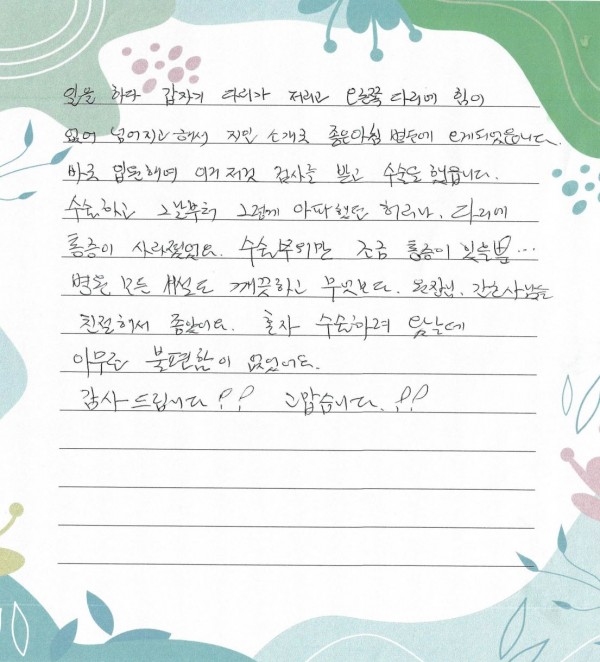 일을 하다 갑자기 다리가 저리고 오른쪽 다리에 힘이
없어 넘어지고 해서 지인 소개로 좋은아침 병원에 오게되었읍니다.
바로 입원해여 이거저것 검사를 받고 수술을 했읍니다.
수술하고 그날부터 그렇게 아파했던 허리나, 다리에
통증이 사라졌었요. 수술부위만 조금 통증이 있을뿐…
병원 모든 시설도 깨끗하고 무엇보다. 원장님, 간호사님들
친절해서 좋았어요. 혼자 수술하려 왔는데
아무런 불편함이 없었어요.
감사드립니다!! 고맙습니다.!!